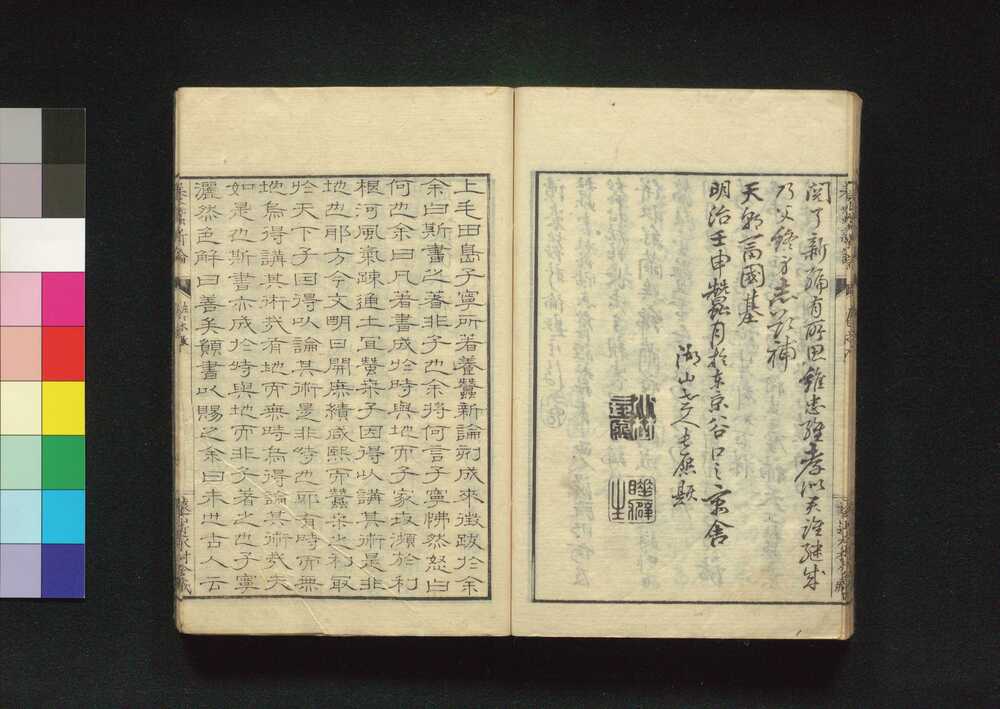 閲了新編有所思雖忠經孝似天證継成
乃父終身志
天朝富國基
明治壬申蠶月於東京谷口之京舎
湖山老人長愿題
上毛田島子寧所著養蠶新論刻成來徴跋於余
余曰斯書之著非子也余將何言子寧怫然怒曰
何也余曰凡著書成於時與地而子家坂瀕於利
根河風氣疎通土宜蠶桒子因得以講其術是非
地也耶方今文明日開庶績咸熙而蠶桒之利最
於天下子因得以論其術是非時也耶有時而無
地烏得講其術哉有地而無時烏得論其術哉夫
如是也斯書亦成於時與地而非子著之也子寧
灑然色解曰善矣願書以賜之余曰未也古人云
養蠶新論